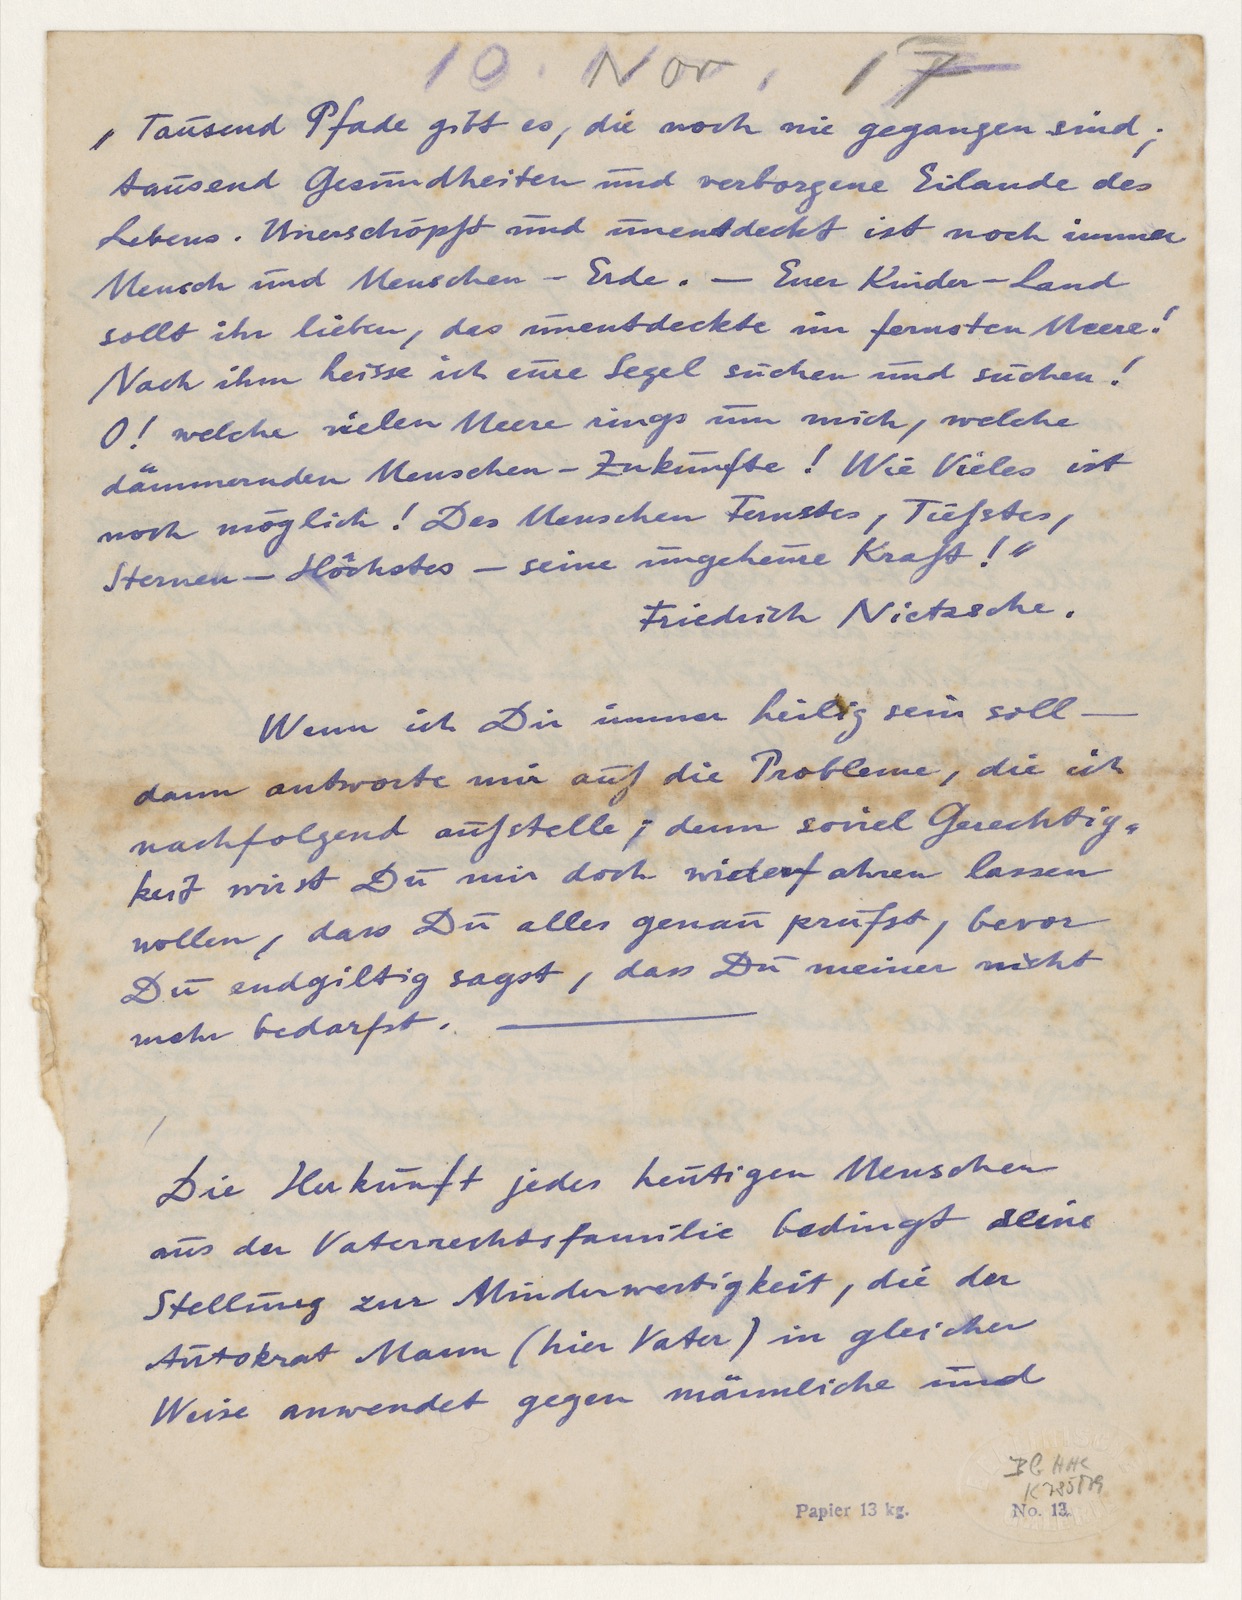 10. Nov. 17
„Tausend Pfade gibt es, die noch nie gegangen sind;
tausend Gesundheiten und verborgene Eilande des
Lebens. Unerschöpft und unentdeckt ist noch immer
Mensch und Menschen – Erde. — Euer Kinder – Land
sollt ihr lieben, das unentdeckte im fernsten Meere!
Nach ihm heisse ich eure Segel suchen und suchen!
O! welche vielen Meere rings um mich, welche
dämmernden Menschen – Zukünfte! Wie Vieles ist
noch möglich! Des Menschen Fernstes, Tiefstes,
Sternen – Höchstes – seine ungeheure Kraft!"
Friedrich Nietzsche.
Wenn ich Dir immer heilig sein soll —
dann antworte mir auf die Probleme, die ich
nachfolgend aufstelle; denn soviel Gerechtig-
keit wirst Du mir doch widerfahren lassen
wollen, dass Du alles genau prüfst, bevor
Du endgiltig sagst, dass Du meiner nicht
mehr bedarfst. ———
Die Herkunft jedes heutigen Menschen
aus der Vaterrechtsfamilie bedingt seine
Stellung zur Minderwertigkeit, die der
Autokrat Mann (hier Vater) in gleicher
Weise anwendet gegen männliche und
BG HHC
K 785/79
Papier 13 kg. No. 13.